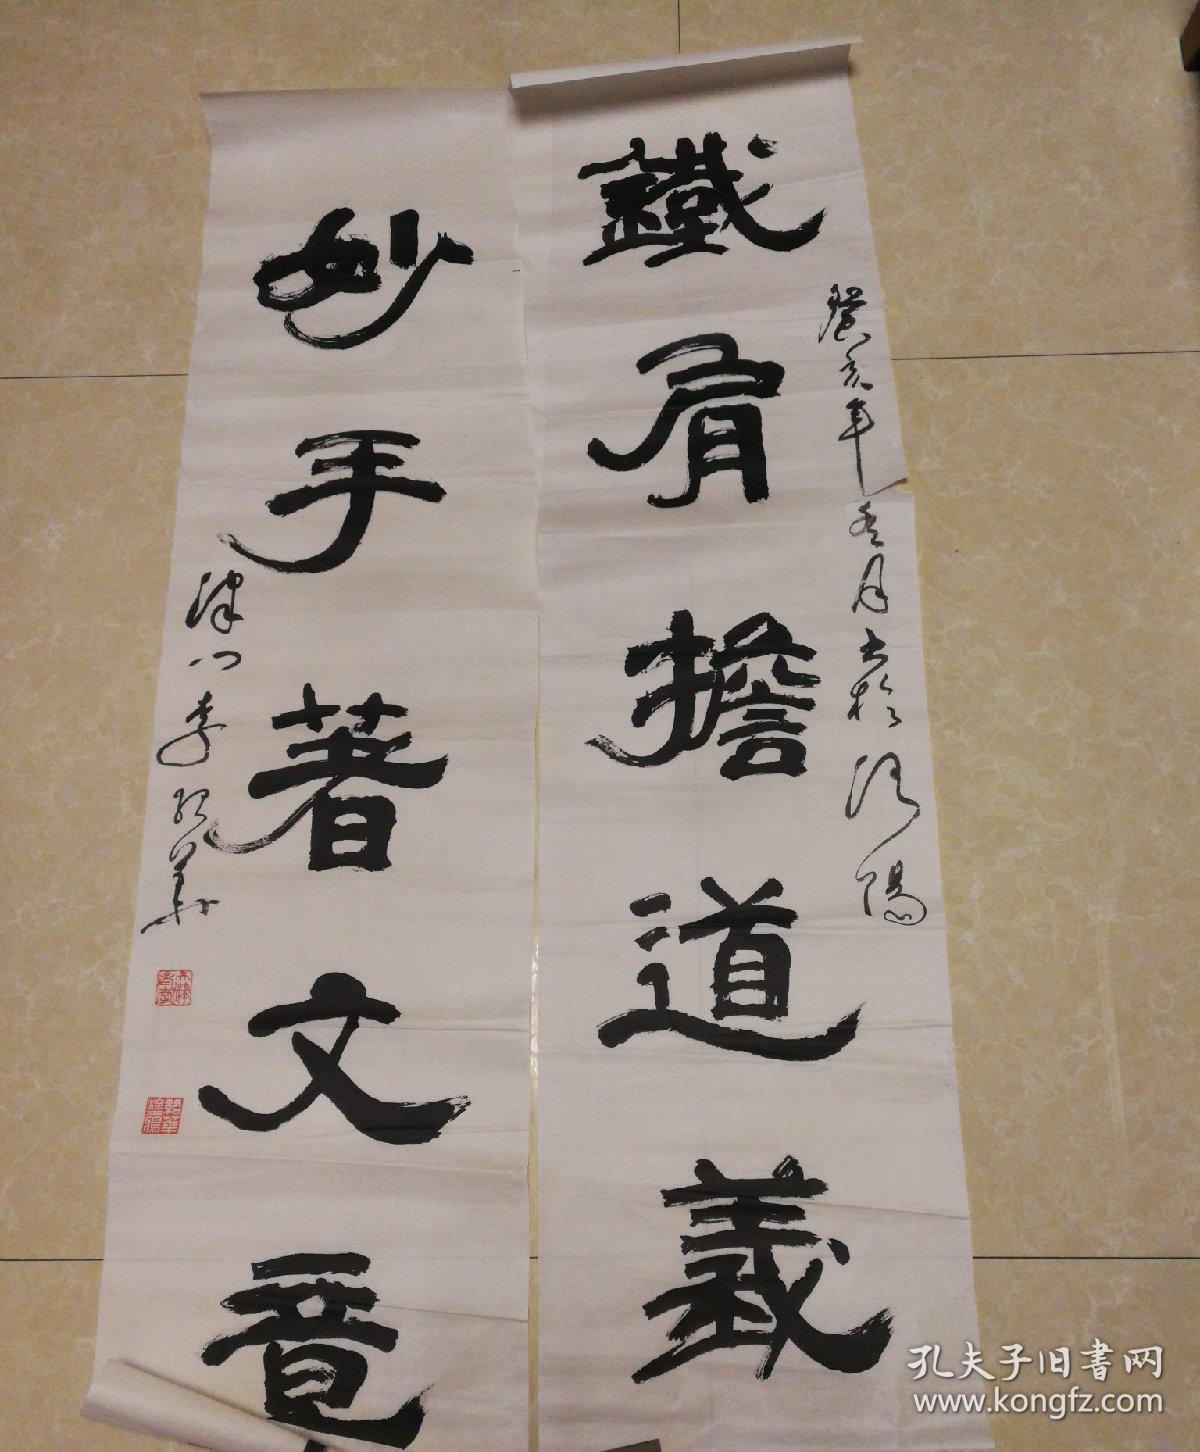 鐵肩擔道義
癸亥年冬月書於沈陽
妙手著文章
津門李
孔夫子旧書网
www.kongfz.com